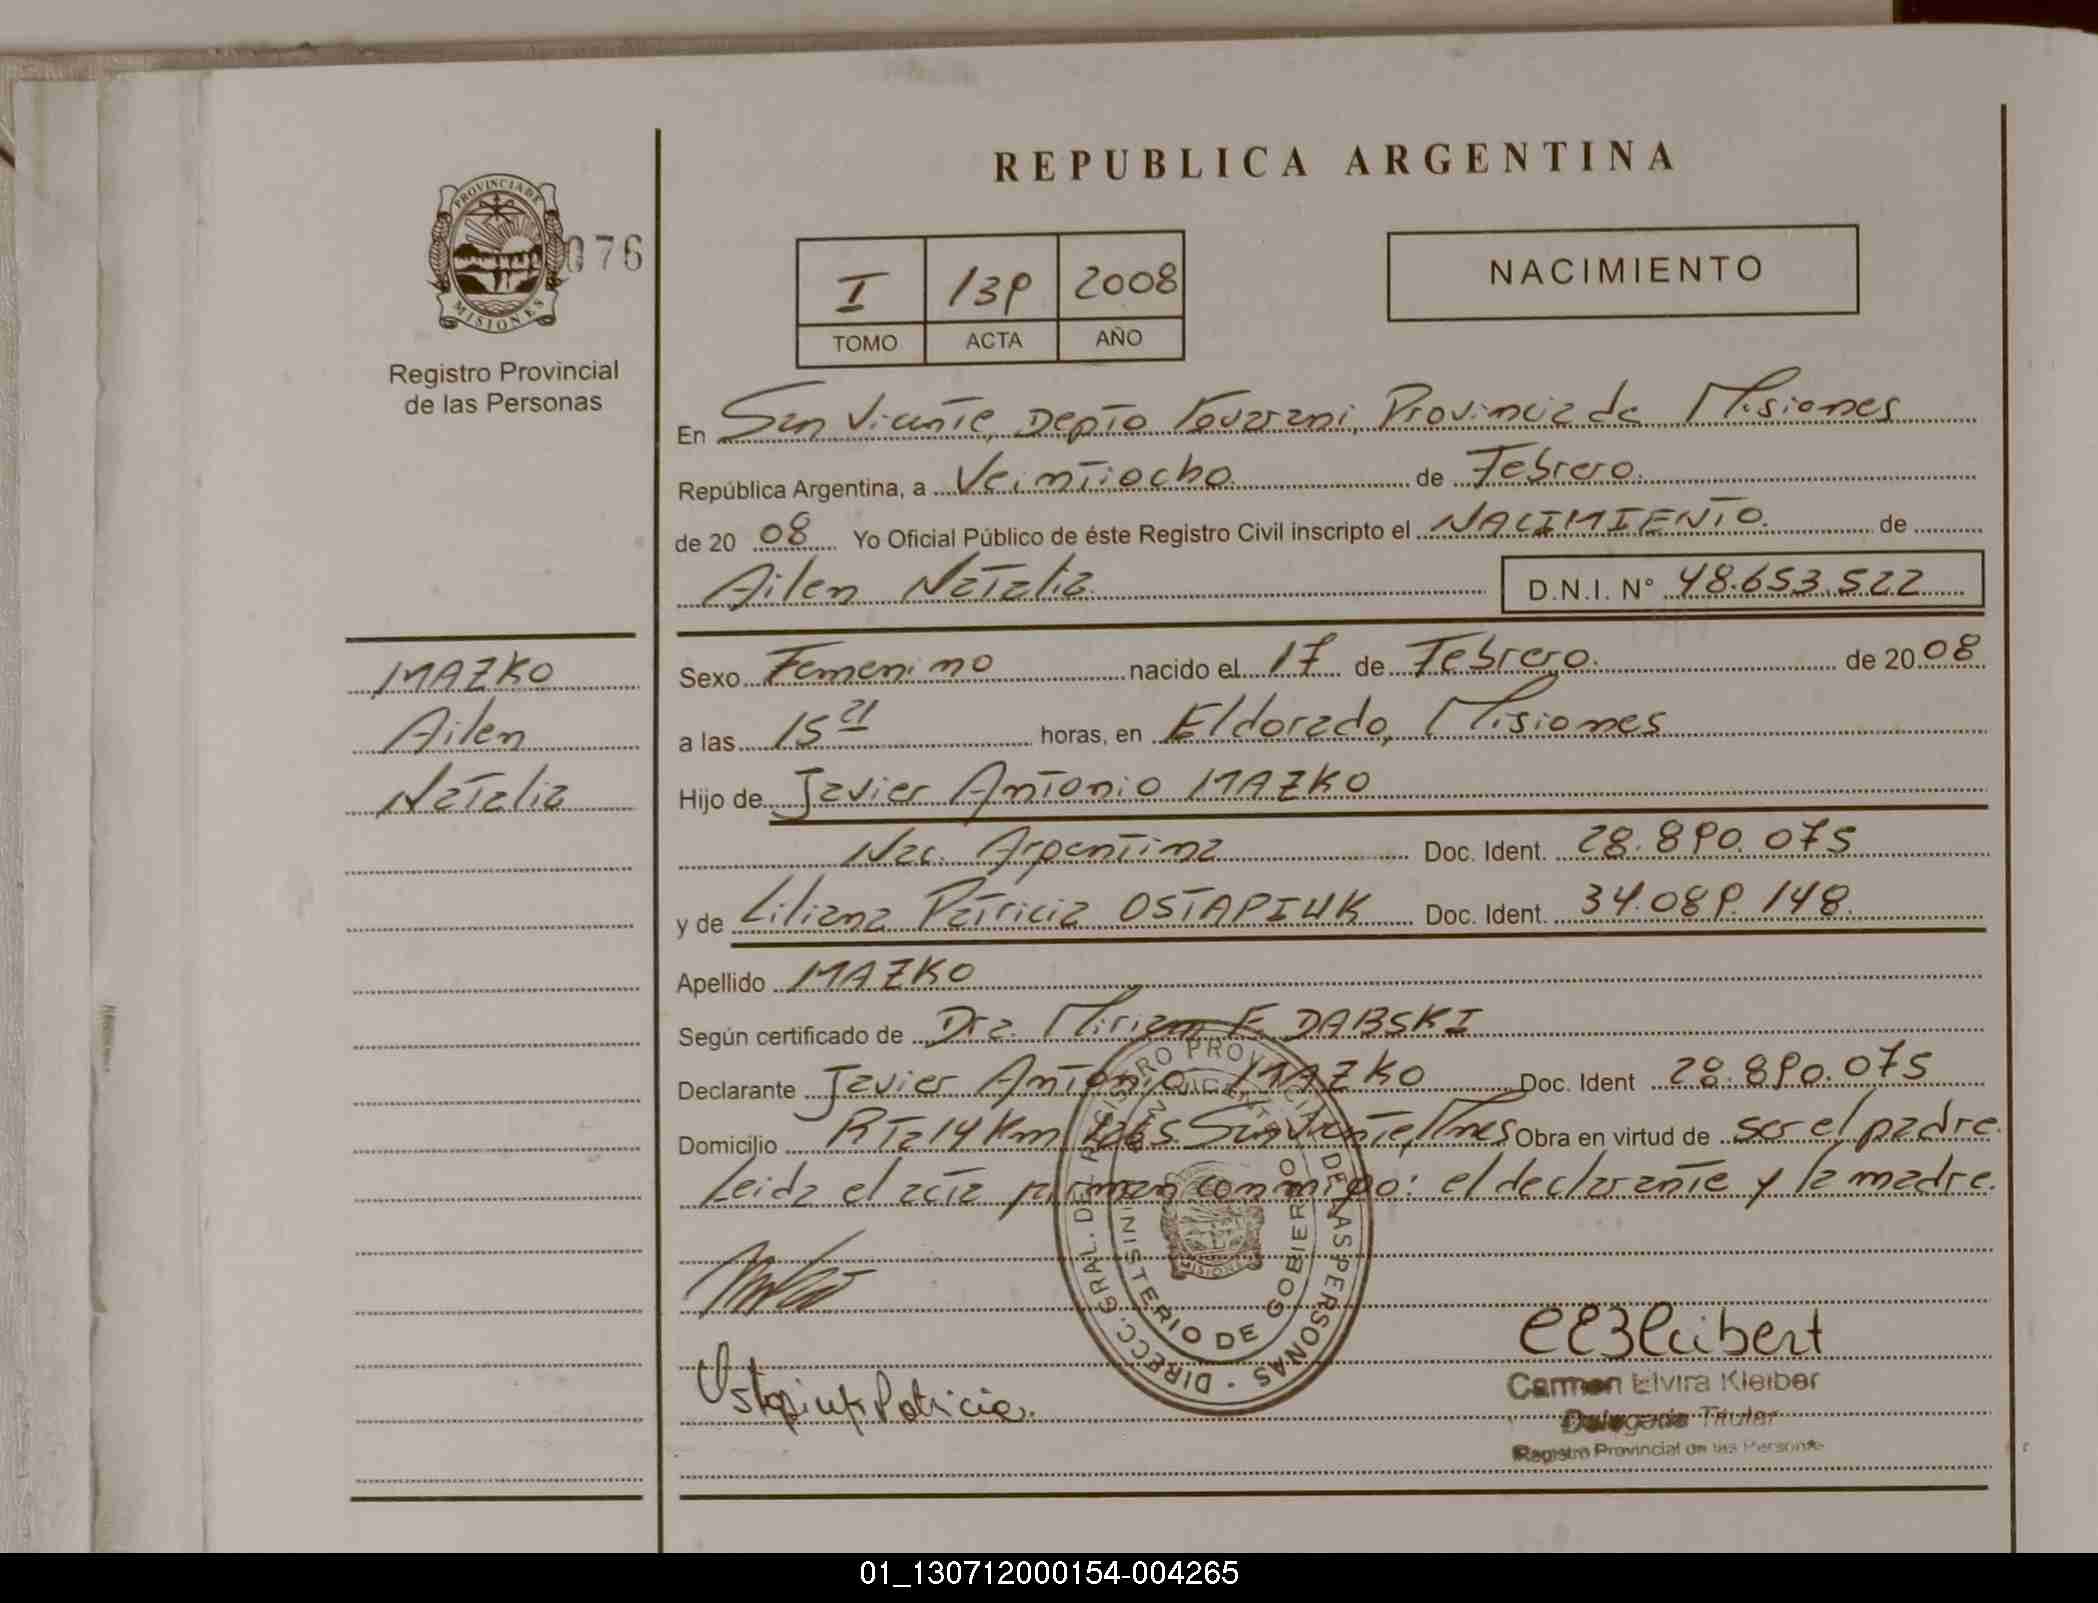 REPUBLICA ARGENTINA
PROVINCIA DE
MISIONES
076
Registro Provincial
de las Personas
I 139 2008
TOMO ACTA AÑO
NACIMIENTO
En San Vicente, Depto Guarani, Provincia de Misiones
República Argentina, a Veintiocho de Febrero.
de 20 08 Yo Oficial Público de éste Registro Civil inscripto el NACIMIENTO. de
Ailen Natalia D.N.I. N° 48.653.522
MAZKO
Ailen
Natalia
Sexo Femenino nacido el 17 de Febrero. de 20 08
a las 15 21 horas, en Eldorado, Misiones
Hijo de Javier Antonio MAZKO
Nac. Argentina Doc. Ident. 28.890.075
y de Liliana Patricia OSTAPIUK Doc. Ident. 34.089.148.
Apellido MAZKO
Según certificado de Dra. Miriam F. DABSKI
Declarante Javier Antonio MAZKO Doc. Ident 28.890.075
Domicilio Rta 14 Km San Vicente, Mnes Obra en virtud de ser el padre.
Leida el acta firman conmigo: el declarante y la madre.
DIRECC. GRAL. DEL REGISTRO PROVINCIAL DE LAS PERSONAS
SAN VICENTE
MINISTERIO DE GOBIERNO
MISIONES
Ostapiuk Patricia.
Carmen Elvira Kleiber
Delegada Titular
Registro Provincial de las Personas
01_130712000154-004265